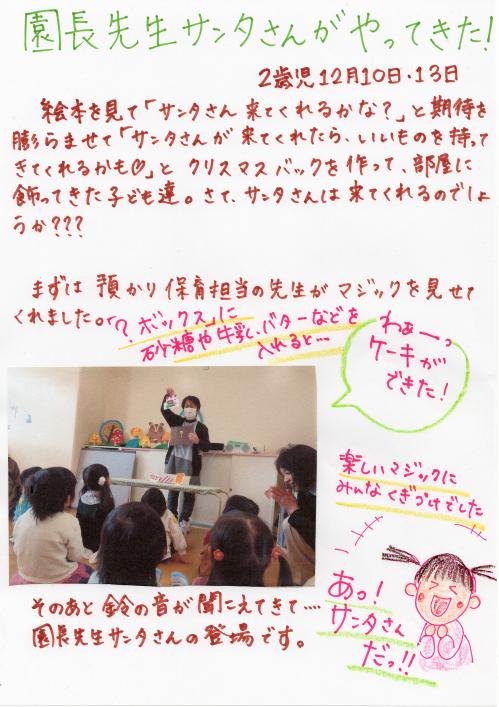 園長先生サンタさんがやってきた!
2歳児12月10日・13日
絵本を見て「サンタさん 来てくれるかな?」と期待を
膨らませて「サンタさんが来てくれたら、いいものを持って
きてくれるかも♡」と クリスマスバックを作って、部屋に
飾ってきた子ども達。さて、サンタさんは来てくれるのでしょ
うか???
まずは 預かり保育担当の先生がマジックを見せて
くれました。
「?ボックス」に
砂糖や牛乳、バターなどを
入れると…
わぁーっ
ケーキが
できた!
楽しいマジックに
みんなくぎづけでした
あっ!
サンタさん
だっ!!
そのあと 鈴の音が聞こえてきて‥‥
園長先生サンタさんの登場です。